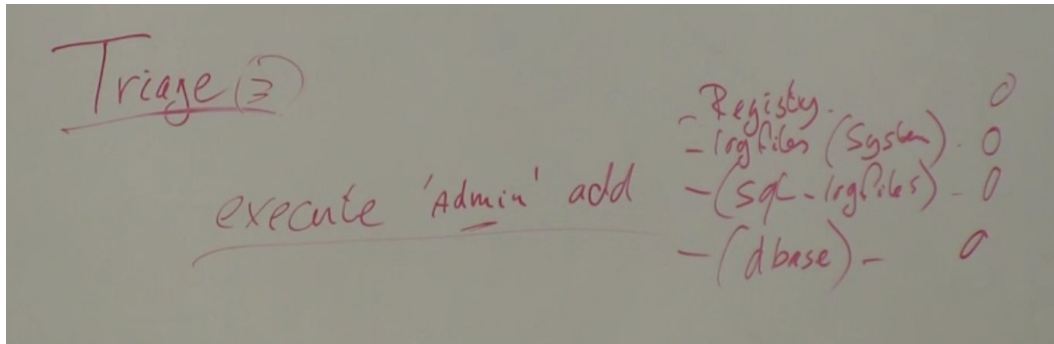 Triage (2)
execute 'Admin' add
- Registry. 0
- logfiles (System). 0
- (sql-logfiles) - 0
- (dbase) - 0